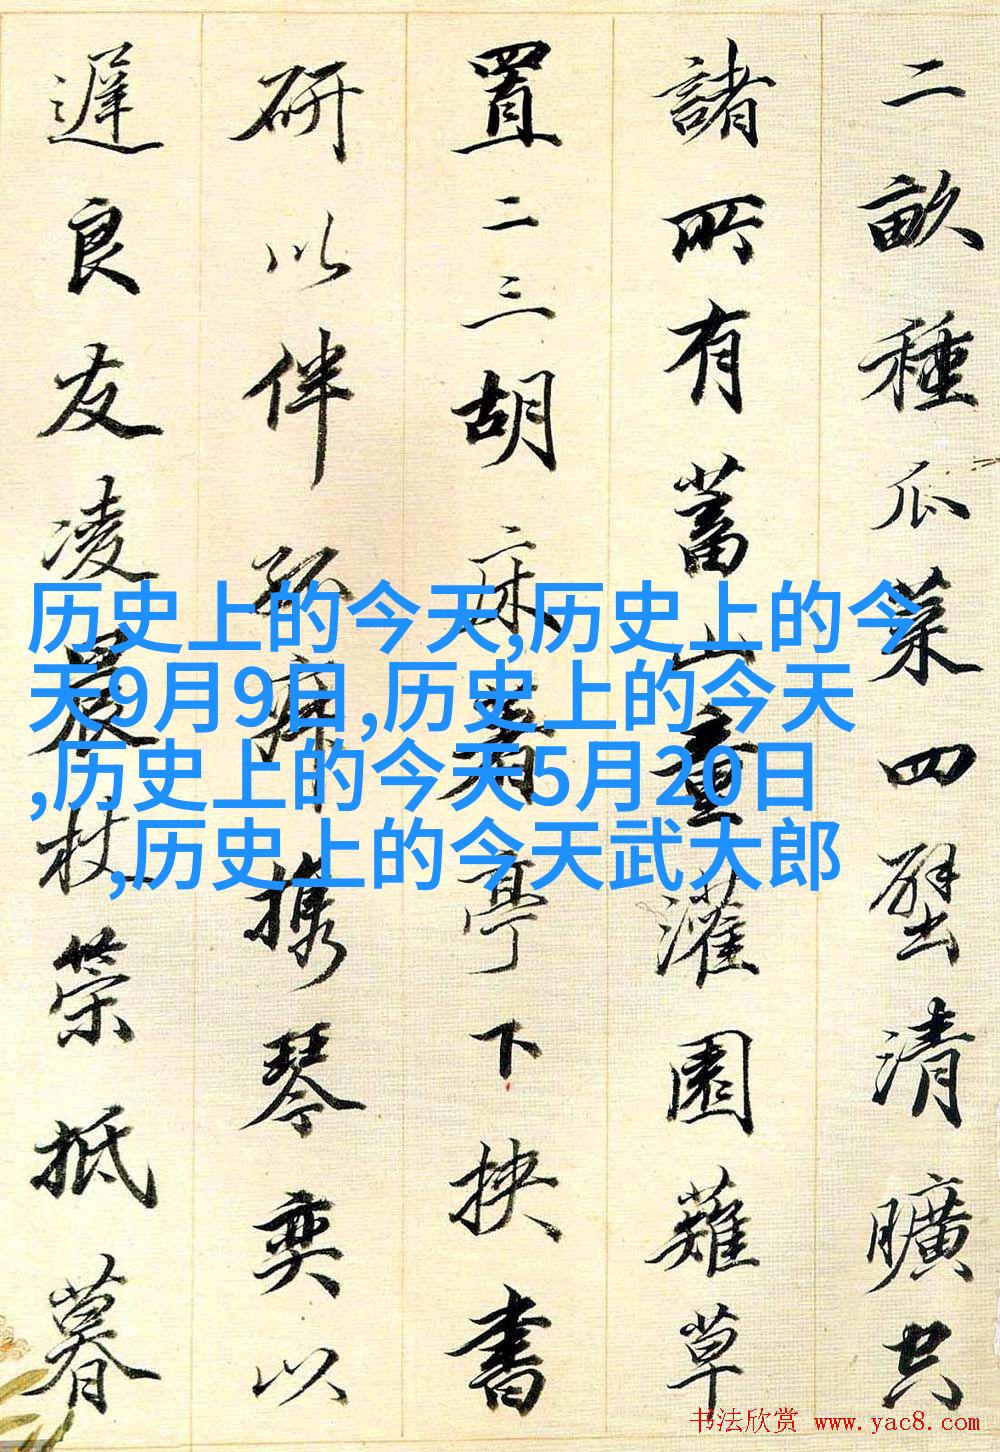 二畝種瓜菜四壁清曠空
諸所有蓄山童灌園薙草
置二三胡床着亭下挾書
研以伴孤寂攜琴奕以
遲良友凌晨杖策抵暮
历史上的今天,历史上的今
天9月9日,历史上的今天
,历史上的今天5月20日
,历史上的今天武大郎
书法欣赏 www.yac8.com